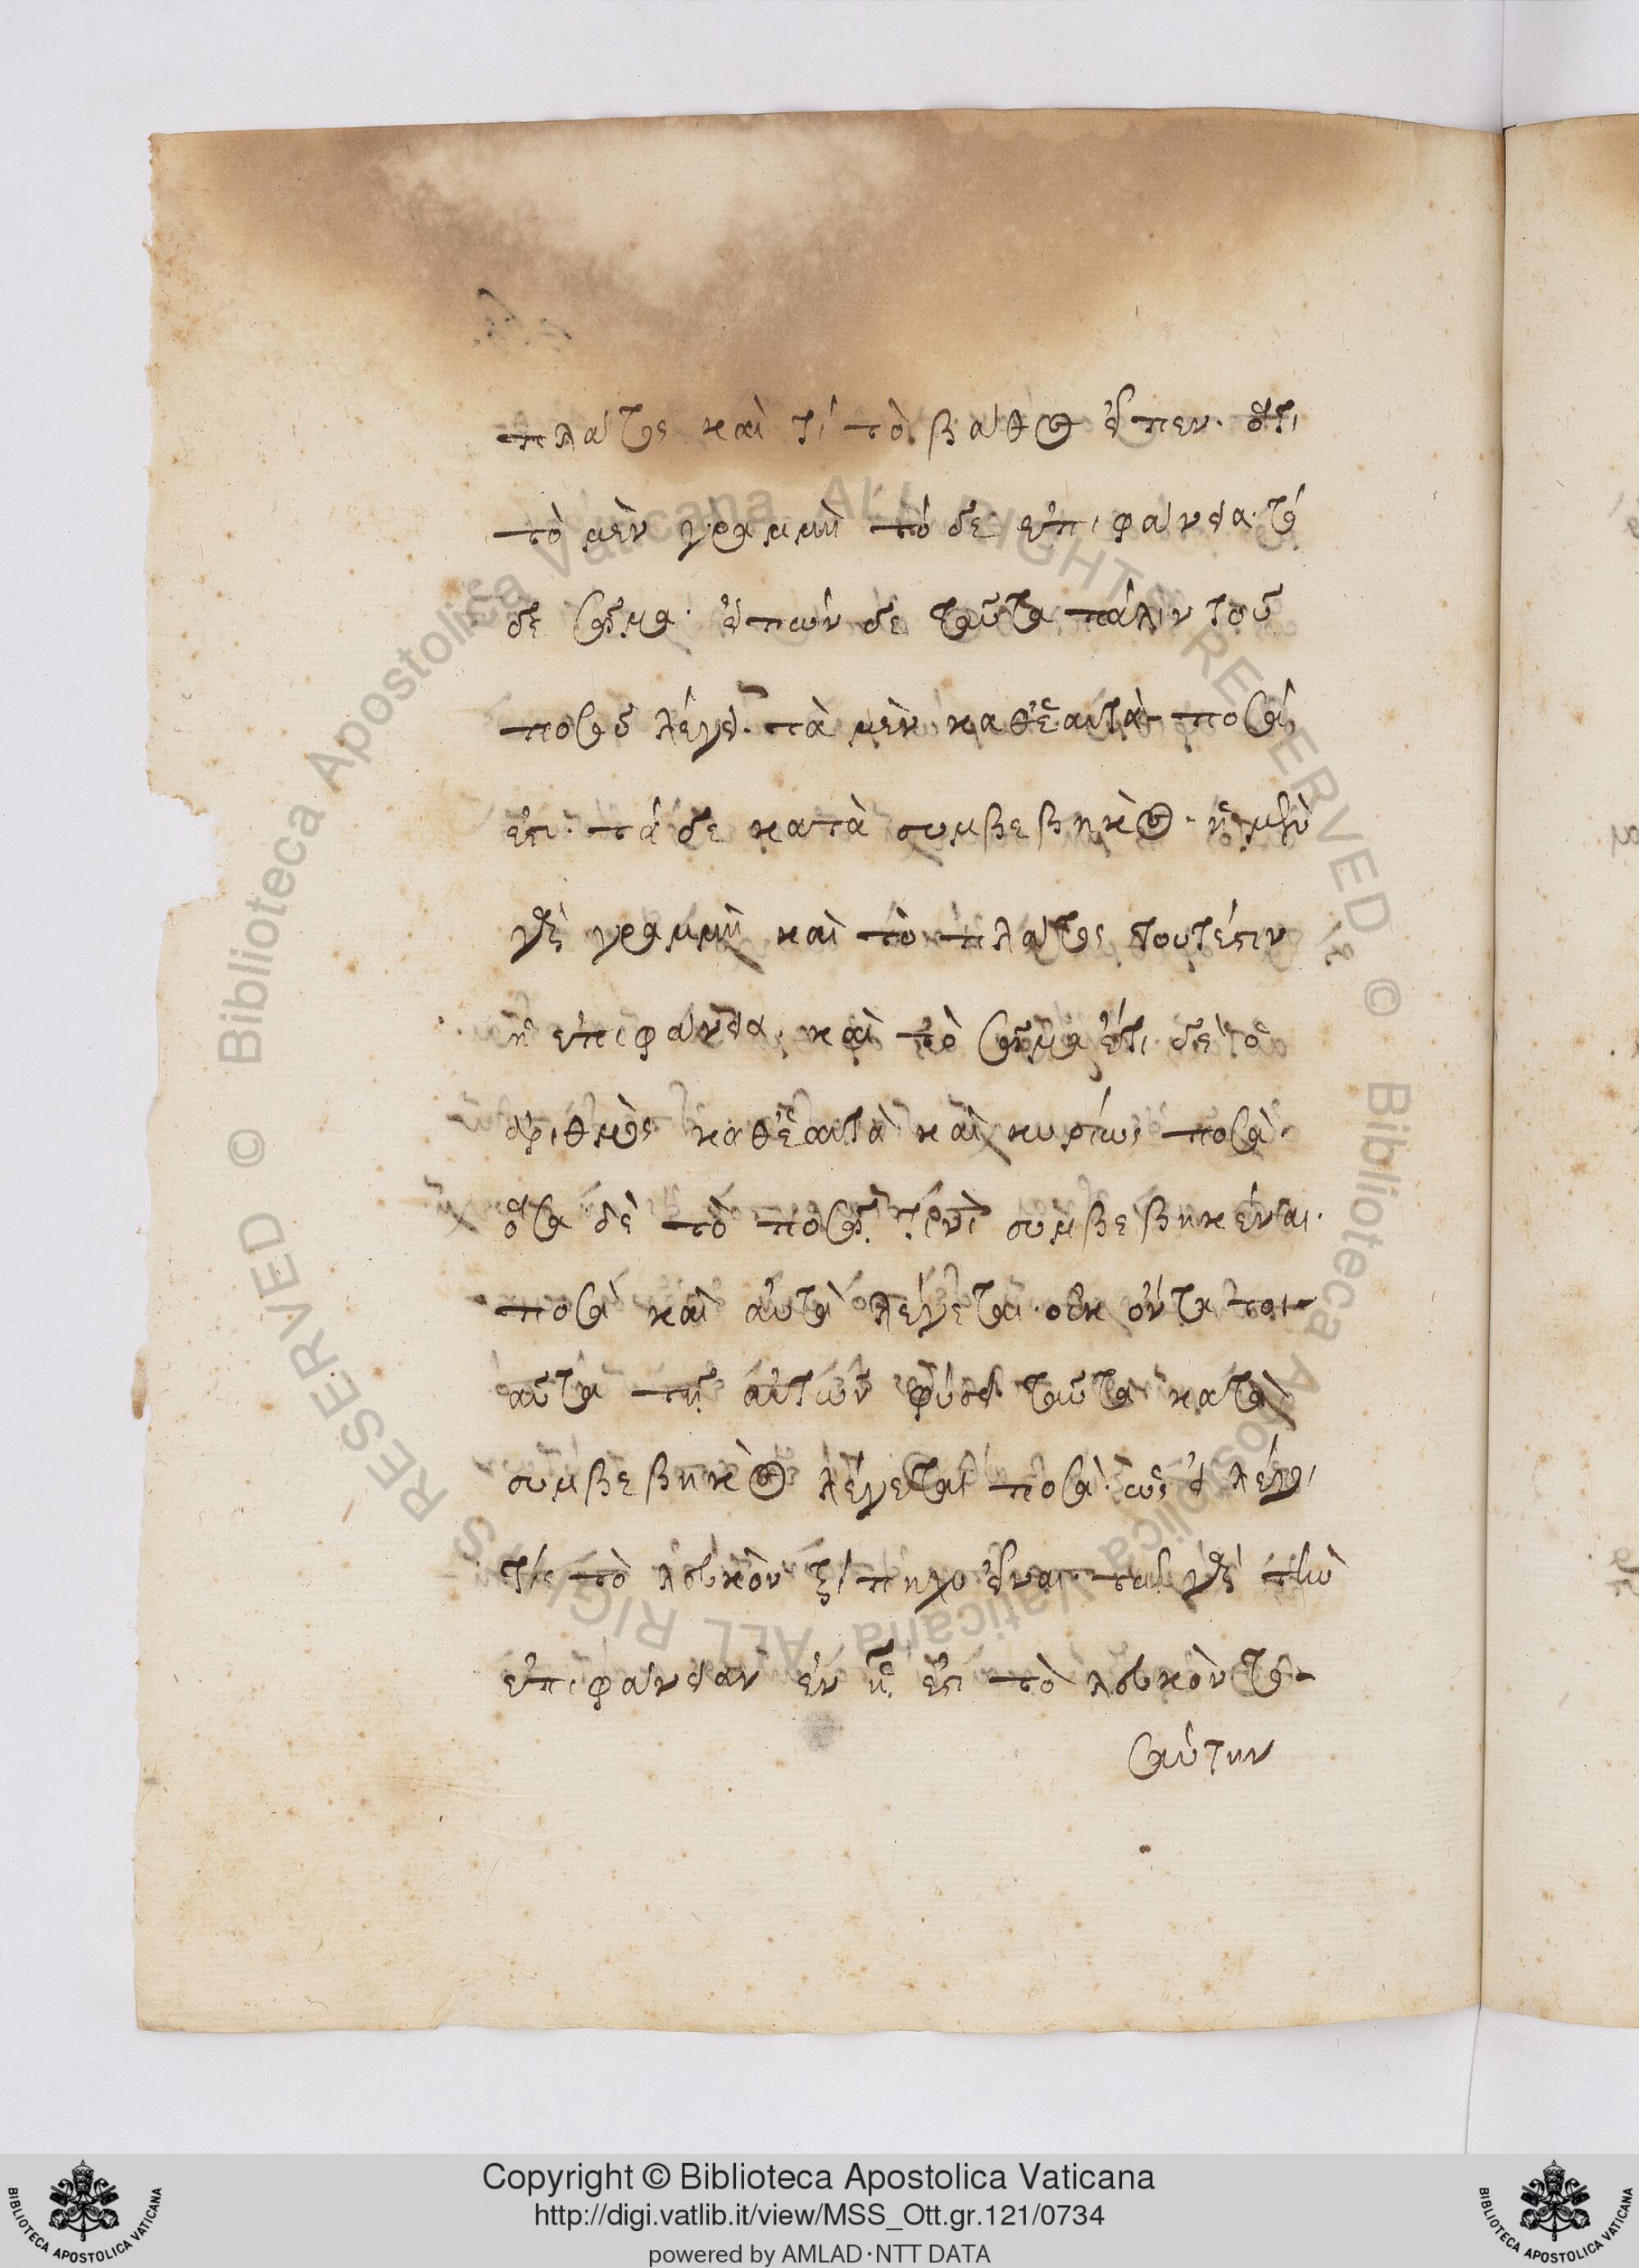 πλάτος καὶ τί τὸ βάθος εἶπεν. ὅτι
τὸ μὲν γραμμὴ τὸ δὲ ἐπιφάνεια· τό
δε σῶμα· εἰπών δε ταῦτα πάλιν τοῦ
ποσοῦ λέγει. τὰ μὲν καθ' ἑαυτὰ ποσά
ἐστι· τά δε κατὰ συμβεβηκὸς· ἡ μὲν
γὰρ γραμμὴ καὶ τὸ πλάτος τουτέστιν
ἡ ἐπιφάνεια, καὶ τὸ σῶμα ἔτι δε ὁ
ἀριθμὸς καθ' ἑαυτὰ καὶ κυρίως ποσὰ·
ὅσα δὲ τὸ ποσῷ τινὶ συμβεβηκέναι·
ποσὰ καὶ αὐτὰ λέγεται· οὐκ ὄντα τοι-
αῦτα τῇ αὐτῶν φύσει ταῦτα κατὰ
συμβεβηκὸς λέγεται ποσὰ· ὡς εἰ λέγοι
τὶς τὸ λευκὸν τρίπηχυ εἶναι τῷ γὰρ τὴν
ἐπιφάνειαν ἐν ᾗ ἐστι τὸ λευκὸν το-
σαύτην
Copyright © Biblioteca Apostolica Vaticana
http://digi.vatlib.it/view/MSS_Ott.gr.121/0734
powered by AMLAD·NTT DATA
BIBLIOTECA APOSTOLICA VATICANA
BIBLIOTECA APOSTOLICA VATICANA
© Biblioteca Apostolica Vaticana ALL RIGHTS RESERVED © Biblioteca Apostolica Vaticana ALL RIGHTS RESERVED